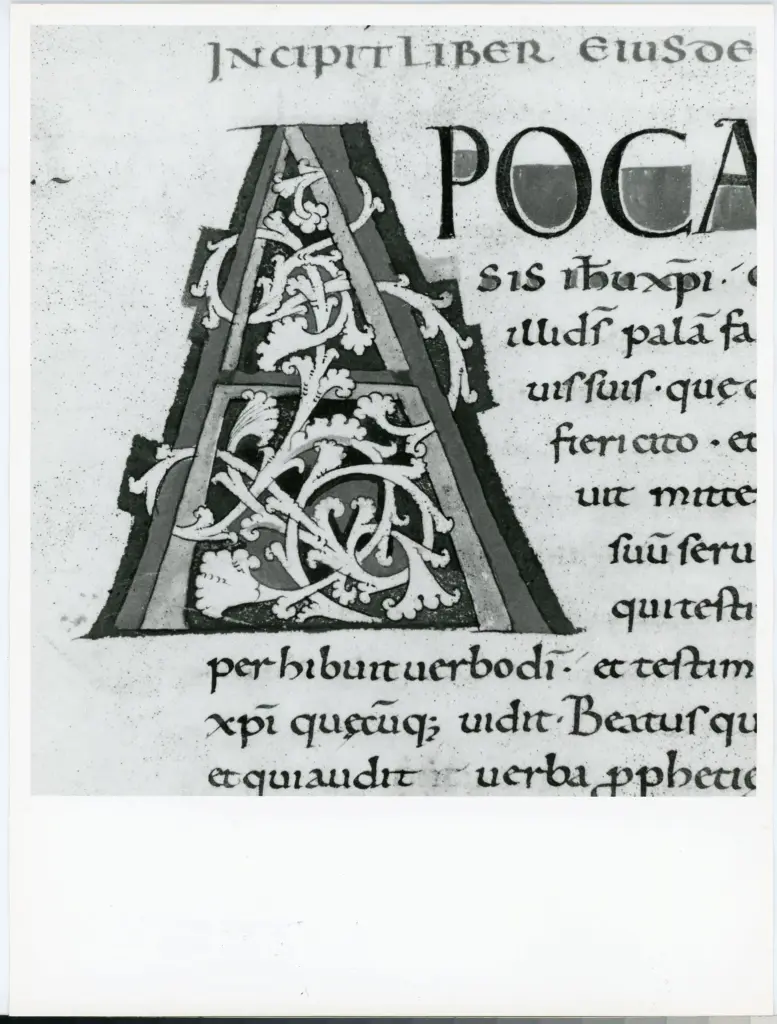 INCIPIT LIBER EIUSDE
APOCA
SIS ihū xp̄i · 
illi ds̄ palā fa
uis suis · quę
fieri cito · et
uit mitte
suū seru
qui testi
perhibuit uerbo dī · et testim
xp̄i quęcūq; uidit · Beatus qu
et qui audit uerba ꝓphetię